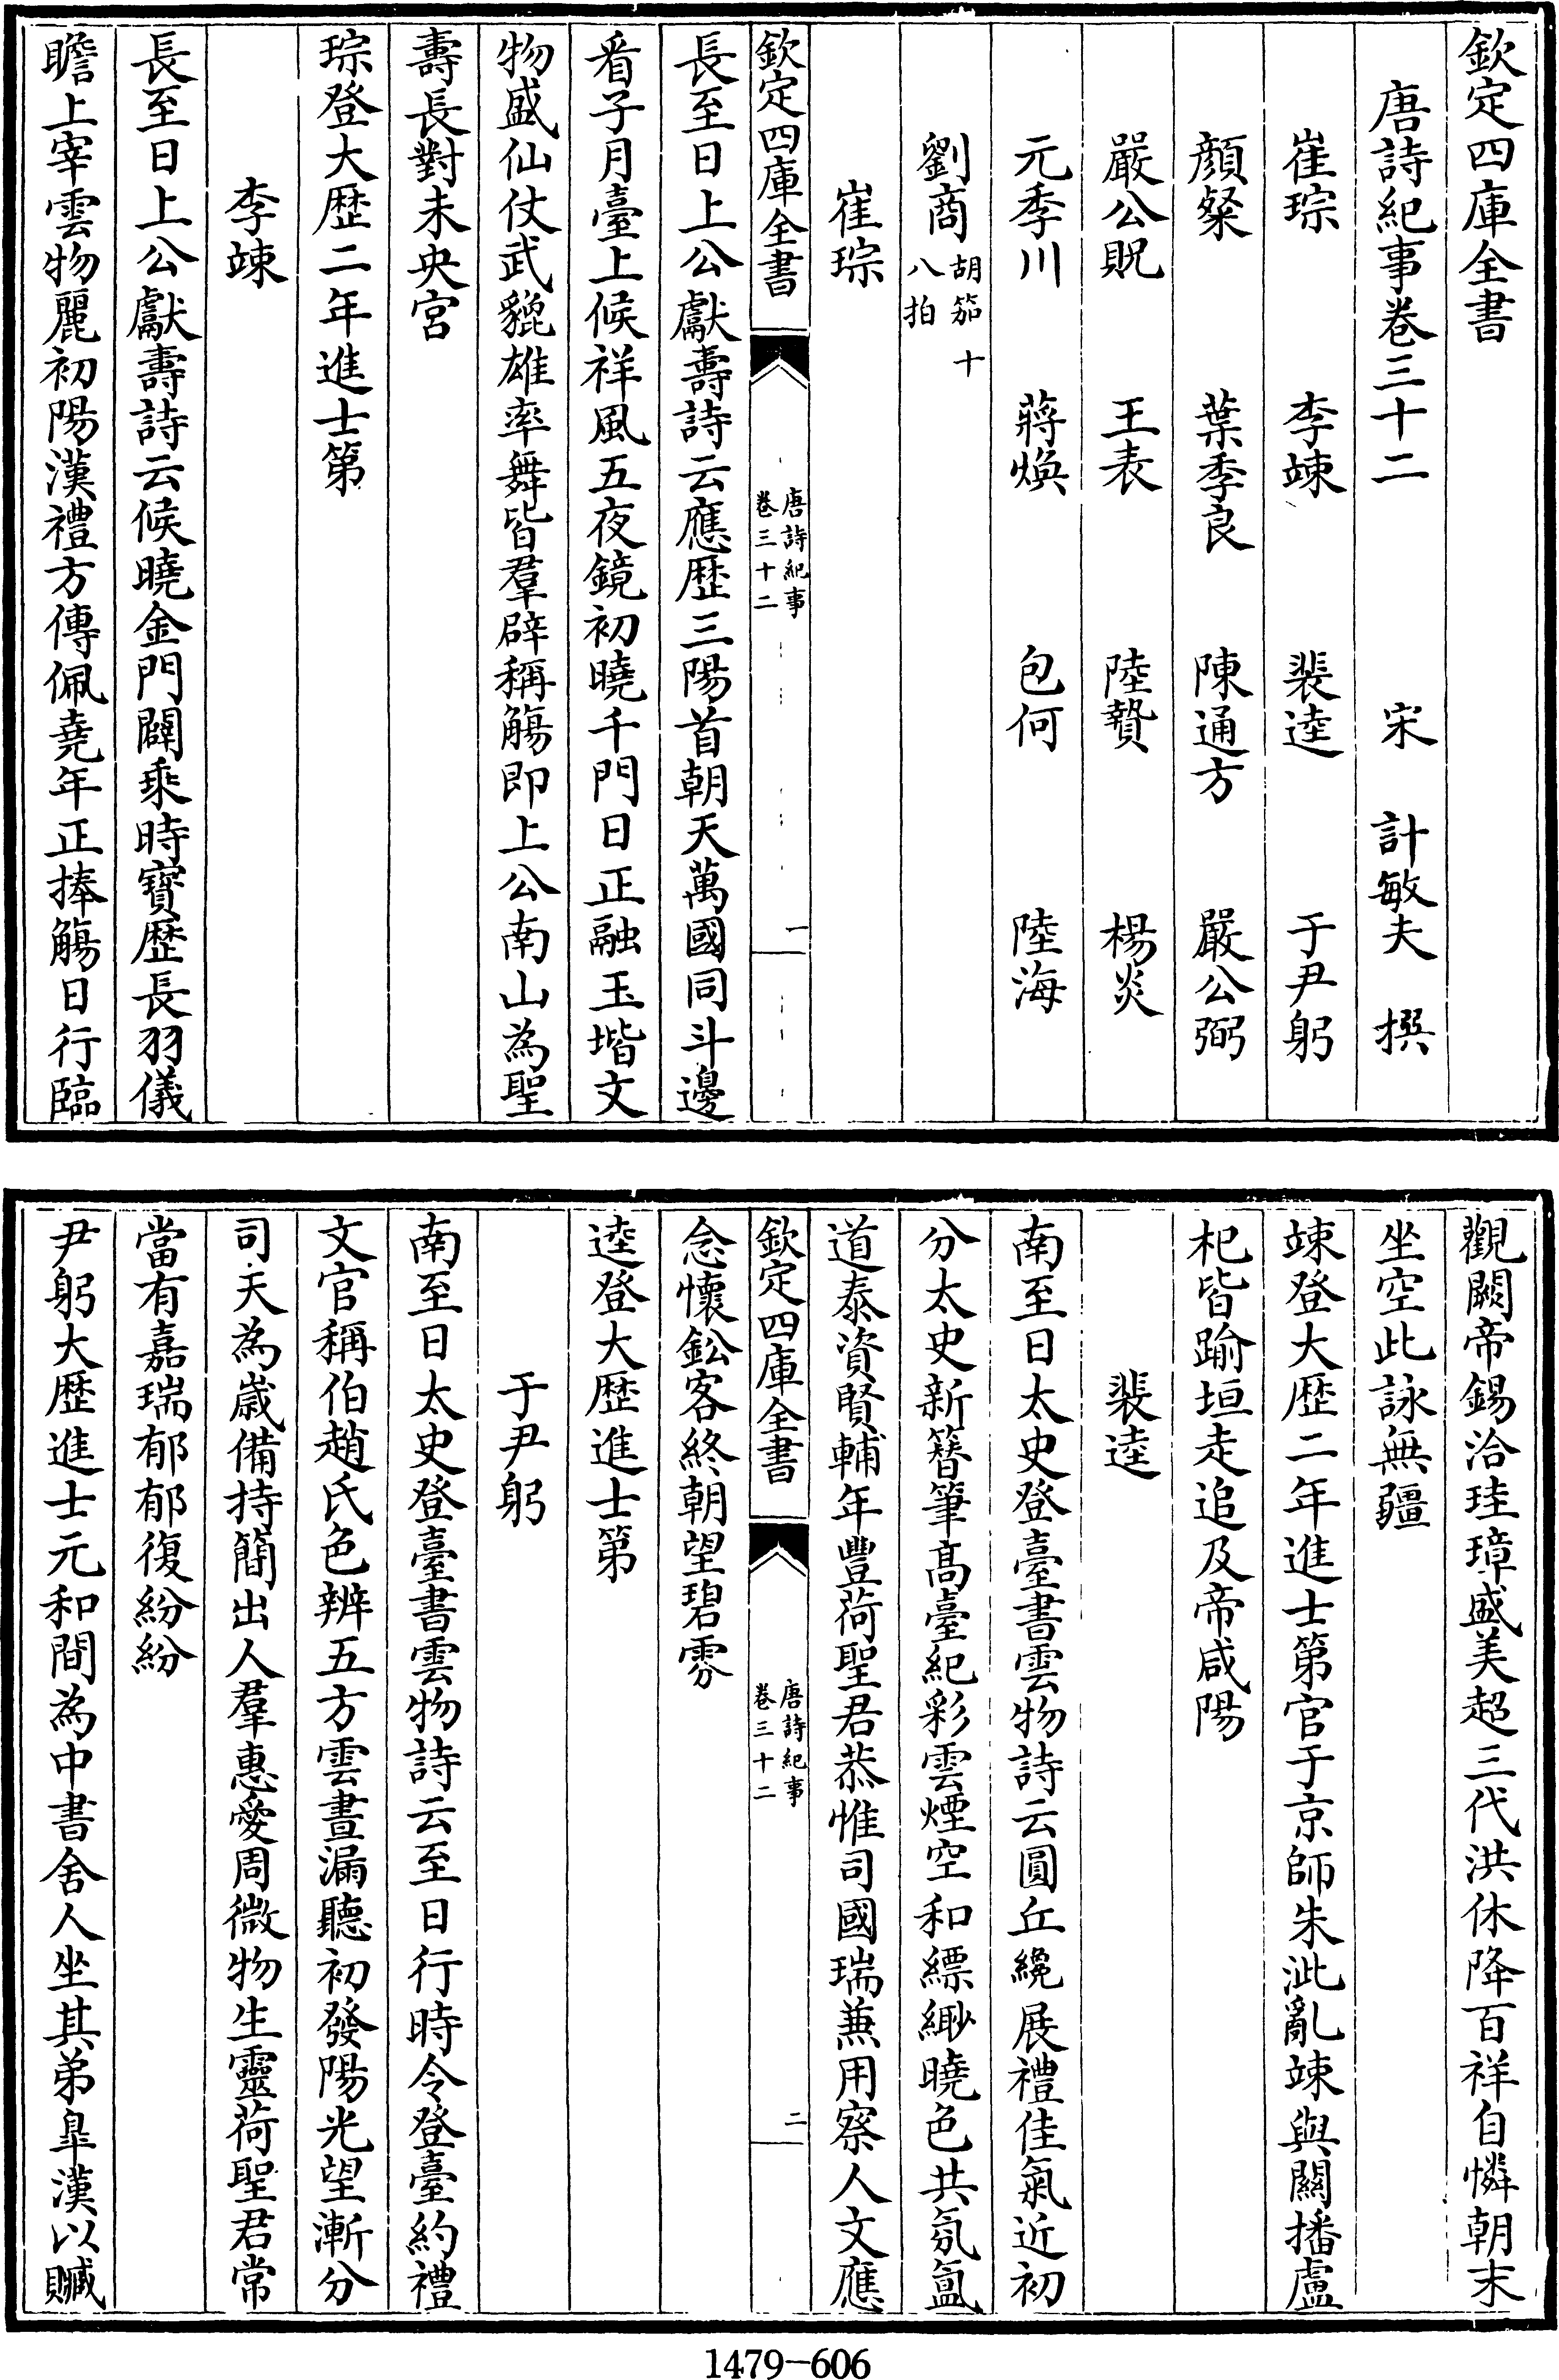 欽定四庫全書
唐詩紀事卷三十二
宋 計敏夫 撰
崔琮 李竦 裴逵 于尹躬
顔粲 葉季良 陳通方 嚴公弼
嚴公貺 王表 陸贄 楊炎
元季川 蔣煥 包何 陸海
劉商胡笳十八拍
崔琮
欽定四庫全書 唐詩紀事卷三十二 一
長至日上公獻壽詩云應歴三陽首朝天萬國同斗邊
看子月臺上候祥風五夜鏡初曉千門日正融玉堦文
物盛仙仗武貔雄率舞皆羣辟稱觴即上公南山為聖
壽長對未央宮
琮登大歴二年進士第
李竦
長至日上公獻壽詩云候曉金門闢乘時寳歴長羽儀
瞻上宰雲物麗初陽漢禮方傳佩堯年正捧觴日行臨
觀闕帝錫洽珪璋盛美超三代洪休降百祥自憐朝末
坐空此詠無疆
竦登大歴二年進士第官于京師朱泚亂竦與關播盧
杞皆踰垣走追及帝咸陽
裴逵
南至日太史登臺書雲物詩云圓丘纔展禮佳氣近初
分太史新簪筆髙臺紀彩雲煙空和縹緲曉色共氛氲
道泰資賢輔年豐荷聖君恭惟司國瑞兼用察人文應
欽定四庫全書 唐詩紀事卷三十二 二
念懷鈆客終朝望碧雰
逵登大歴進士第
于尹躬
南至日太史登臺書雲物詩云至日行時令登臺約禮
文官稱伯趙氏色辨五方雲晝漏聽初發陽光望漸分
司天為嵗備持簡出人羣惠愛周微物生靈荷聖君常
當有嘉瑞郁郁復紛紛
尹躬大歴進士元和間為中書舍人坐其弟臯漢以贓
1479-606